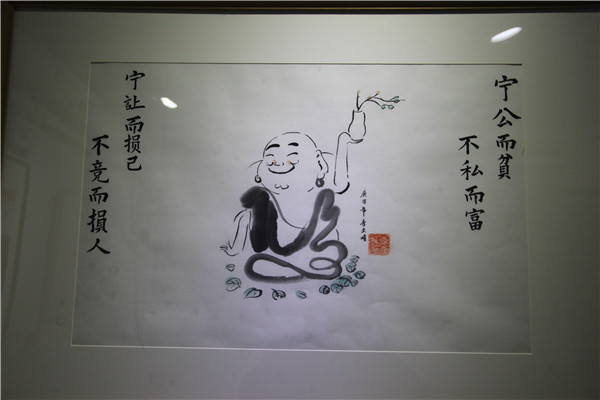 宁公而貧
不私而富
宁让而损己
不竟而損人